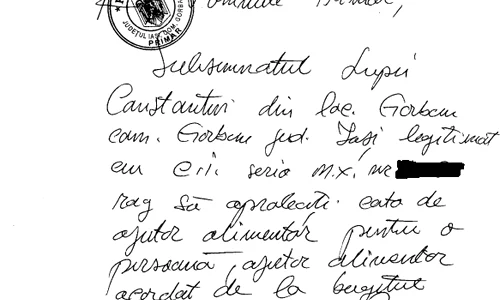 Domnule Primar,
JUDEŢUL IAŞI, COM. GORBAN
PRIMAR
Subsemnatul Lupu
Constantin din loc. Gorban
com. Gorban jud. Iaşi legitimat
cu c.i. seria m.x. nr
rog să aprobaţi cota de
ajutor alimentar pentru o
persoană, ajutor alimentar
acordat de la bugetul